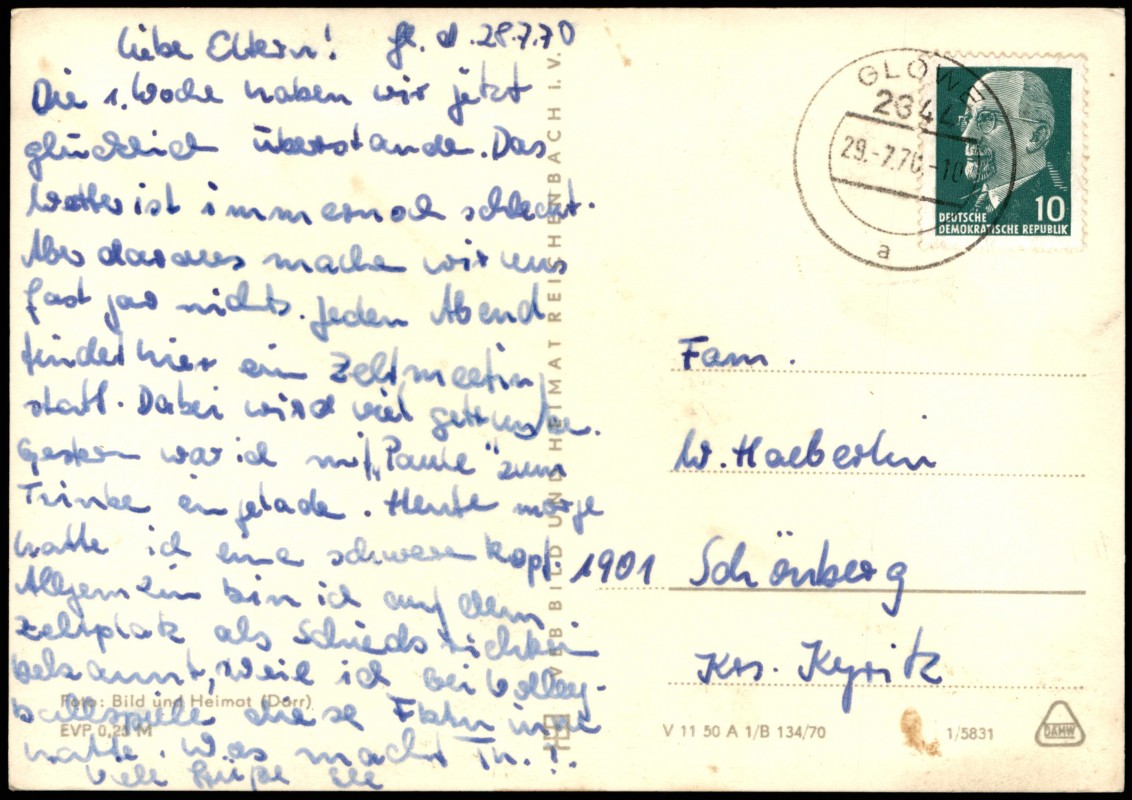 Liebe Eltern! Gl. d. 28.7.70
Die 1. Woche haben wir jetzt
glücklich überstanden. Das
Wetter ist immernoch schlecht.
Aber daraus machen wir uns
fast gar nichts. Jeden Abend
findet hier ein Zeltmeeting
statt. Dabei wird viel getrunken.
Gestern war ich mit „Paule“ zum
Trinke eingelade. Heute morge
hatte ich eine schweren Kopf.
Allgemein bin ich auf dem
Zeltplatz als Schiedsrichter
bekannt, weil ich bei Volley-
ballspiele diese Fktn inne
hatte. Was macht Th.?
Viele Grüße
Foto: Bild und Heimat (Dörr)
EVP 0,25 M
VEB BILD UND HEIMAT REICHENBACH i. V.
GLOWE
2344
29.-7.70.-10
a
10
DEUTSCHE
DEMOKRATISCHE REPUBLIK
Fam.
W. Haeberlin
1901 Schönberg
Krs. Kyritz
V 11 50 A 1/B 134/70
1/5831
DAMW